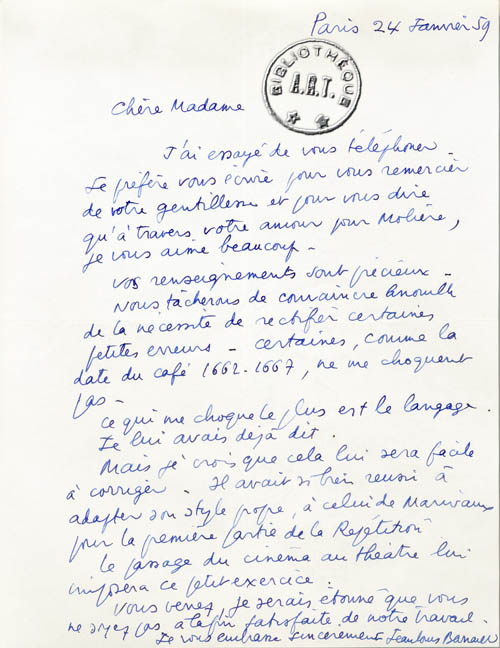 Paris 24 Janvier 59
BIBLIOTHÈQUE
A.R.T.
Chère Madame
J'ai essayé de vous téléphoner.
Je préfère vous écrire pour vous remercier
de votre gentillesse et pour vous dire
qu'à travers votre amour pour Molière,
je vous aime beaucoup -
Vos renseignements sont précieux -
Nous tâcherons de convaincre Anouilh
de la nécessité de rectifier certaines
petites erreurs - certaines, comme la
date du café 1662-1667, ne me choquent
pas -
Ce qui me choque le plus est le langage.
Je lui avais déjà dit.
Mais je crois que cela lui sera facile
à corriger - Il avait si bien reussi à
adapter son style propre, à celui de Marivaux
pour la première partie de la Répétition
Le passage du cinéma au théâtre lui
imposera ce petit exercice.
Vous venez, je serais etonné que vous
ne soyez pas à la fin satisfaite de notre travail.
Je vous embrasse sincerement Jean Louis Barrault